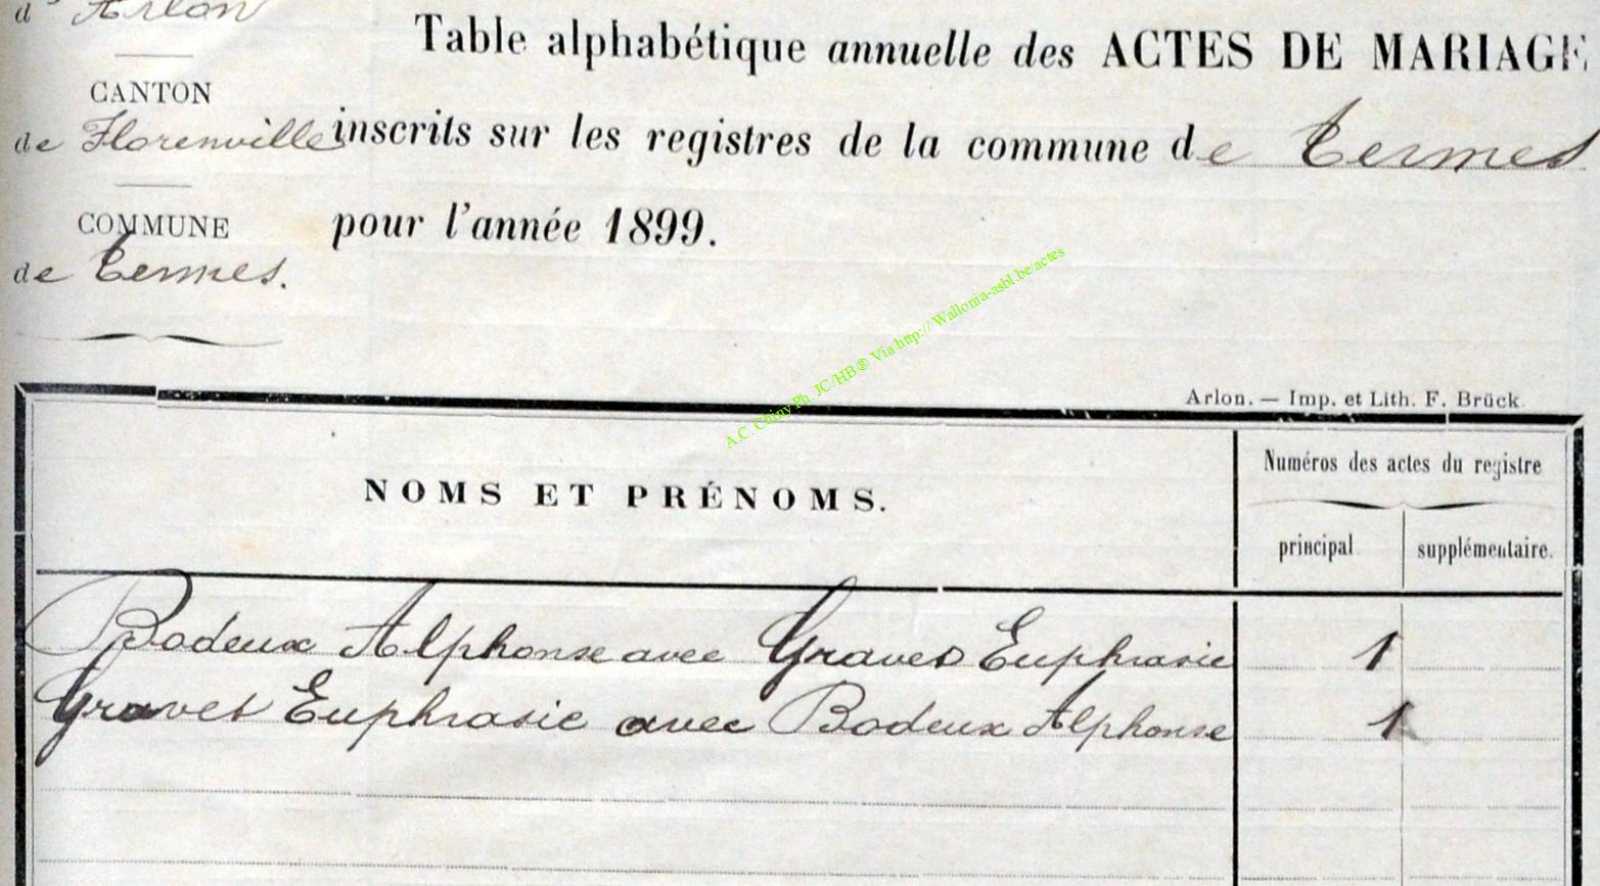 d' Arlon
CANTON
de Florenville
COMMUNE
de Termes.
Table alphabétique annuelle des ACTES DE MARIAGE
inscrits sur les registres de la commune de Termes
pour l'année 1899.
A.C Chiny Ph. JC/HB® Via http://Wallonia-asbl.be/actes
Arlon. — Imp. et Lith. F. Brück
NOMS ET PRÉNOMS.
Numéros des actes du registre
principal supplémentaire.
Bodeux Alphonse avec Graves Euphrasie 1
Graves Euphrasie avec Bodeux Alphonse 1